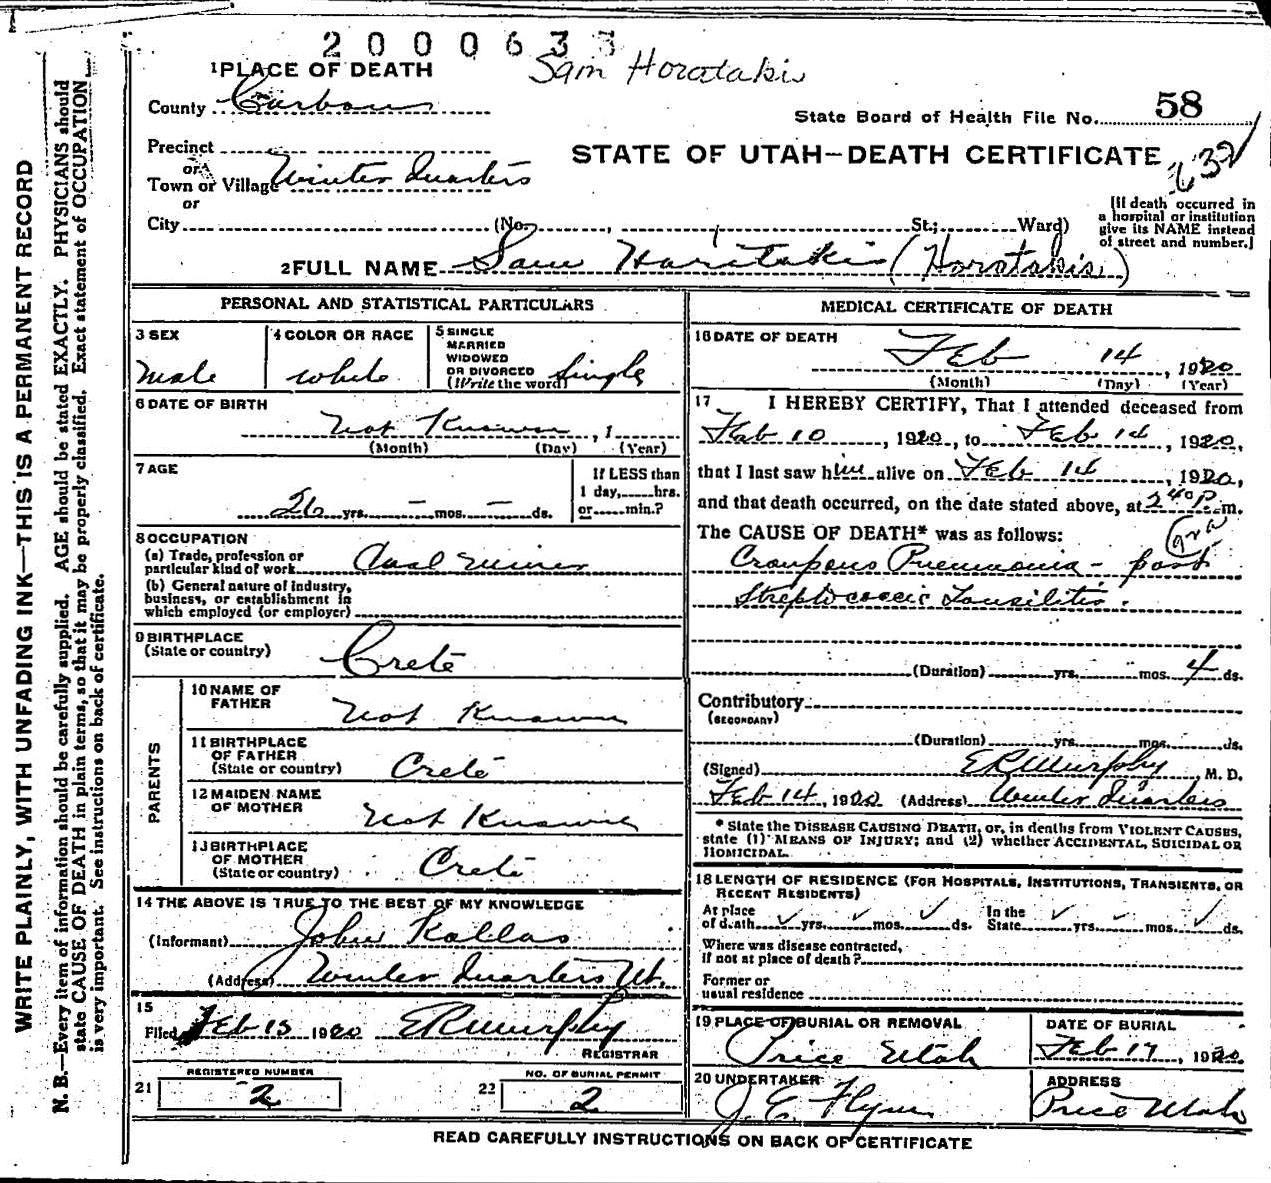 2000633
Sam Horatakis
1 PLACE OF DEATH
County Carbon
State Board of Health File No. 58
Precinct
or
Town or Village Winter Quarters
or
City (No. , St.; Ward)
STATE OF UTAH—DEATH CERTIFICATE
632
[If death occurred in
a hospital or institution
give its NAME instead
of street and number.]
2 FULL NAME Sam Haritakis (Horotakis)
PERSONAL AND STATISTICAL PARTICULARS
3 SEX
Male
4 COLOR OR RACE
White
5 SINGLE
MARRIED
WIDOWED
OR DIVORCED
(Write the word) Single
6 DATE OF BIRTH
Not Known , 1
(Month) (Day) (Year)
7 AGE
26 yrs. – mos. – ds.
If LESS than
1 day, hrs.
or min.?
8 OCCUPATION
(a) Trade, profession or
particular kind of work Coal Miner
(b) General nature of industry,
business, or establishment in
which employed (or employer)
9 BIRTHPLACE
(State or country)
Crete
PARENTS
10 NAME OF
FATHER
Not Known
11 BIRTHPLACE
OF FATHER
(State or country) Crete
12 MAIDEN NAME
OF MOTHER
Not Known
13 BIRTHPLACE
OF MOTHER
(State or country) Crete
14 THE ABOVE IS TRUE TO THE BEST OF MY KNOWLEDGE
(Informant) John Kallas
(Address) Winter Quarters Ut.
15
Filed Feb 15 1920 E R Murphy
REGISTRAR
21 REGISTERED NUMBER
2
22 NO. OF BURIAL PERMIT
2
MEDICAL CERTIFICATE OF DEATH
16 DATE OF DEATH
Feb 14 , 1920
(Month) (Day) (Year)
17 I HEREBY CERTIFY, That I attended deceased from
Feb 10 , 1920, to Feb 14 , 1920,
that I last saw him alive on Feb 14 1920,
and that death occurred, on the date stated above, at 2 40 P. m.
The CAUSE OF DEATH* was as follows:
Croupous Pneumonia – post
Streptococcic Tonsilitis.
(Duration) yrs. mos. 4 ds.
Contributory
(SECONDARY)
(Duration) yrs. mos. ds.
(Signed) E R Murphy , M. D.
Feb 14 , 1920 (Address) Winter Quarters
* State the DISEASE CAUSING DEATH, or, in deaths from VIOLENT CAUSES,
state (1) MEANS OF INJURY; and (2) whether ACCIDENTAL, SUICIDAL OR
HOMICIDAL.
18 LENGTH OF RESIDENCE (FOR HOSPITALS, INSTITUTIONS, TRANSIENTS, OR
RECENT RESIDENTS)
At place
of death ✓ yrs. ✓ mos. ✓ ds. In the
State ✓ yrs. – mos. ✓ ds.
Where was disease contracted,
if not at place of death?
Former or
usual residence
19 PLACE OF BURIAL OR REMOVAL
Price Utah
DATE OF BURIAL
Feb 17 , 1920
20 UNDERTAKER
J. E. Flynn
ADDRESS
Price Utah
READ CAREFULLY INSTRUCTIONS ON BACK OF CERTIFICATE
WRITE PLAINLY, WITH UNFADING INK—THIS IS A PERMANENT RECORD
N. B.—Every item of information should be carefully supplied. AGE should be stated EXACTLY. PHYSICIANS should
state CAUSE OF DEATH in plain terms, so that it may be properly classified. Exact statement of OCCUPATION
is very important. See instructions on back of certificate.